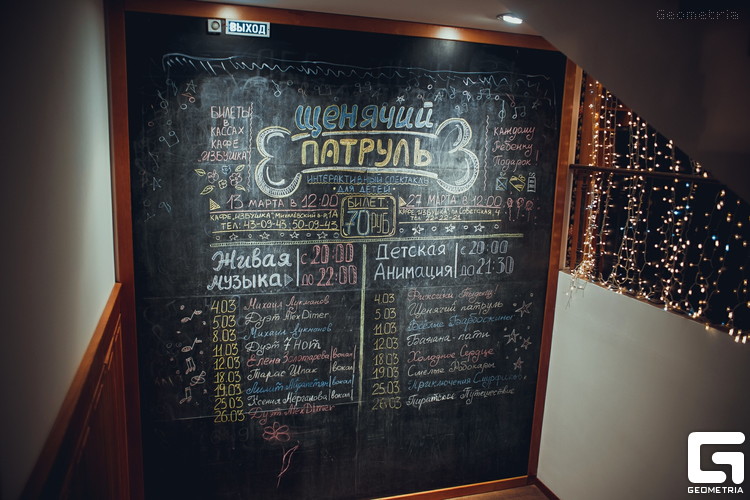 Geometria
ВЫХОД
БИЛЕТЫ
В
КАССАХ
КАФЕ
"ИЗБУШКА"
ЩЕНЯЧИЙ
ПАТРУЛЬ
ИНТЕРАКТИВНЫЙ СПЕКТАКЛЬ
ДЛЯ ДЕТЕЙ
КАЖДОМУ
РЕБЕНКУ
ПОДАРОК!
13 МАРТА в 12:00
КАФЕ "ИЗБУШКА"
ТЕЛ: 43-09-43, 50-09-43
БИЛЕТ
70 РУБ
27 МАРТА в 12:00
КАФЕ "ИЗБУШКА"
Живая
музыка
с 20:00
до 22:00
4.03 Михаил Лукманов
5.03 Дуэт AlexDimer
8.03 Михаил Лукманов
11.03 Дуэт 7 Нот
12.03 Елена Золотарева | вокал
13.03 Тарас Шпак | вокал
18.03
19.03 | вокал
25.03 Ксения | вокал
26.03 Дуэт AlexDimer
Детская
Анимация
с 20:00
до 21:30
4.03
5.03 Щенячий патруль
11.03
12.03 пати
18.03 Холодное Сердце
19.03 Смелые
25.03 Приключения
26.03 Пиратское Путешествие
G
GEOMETRIA